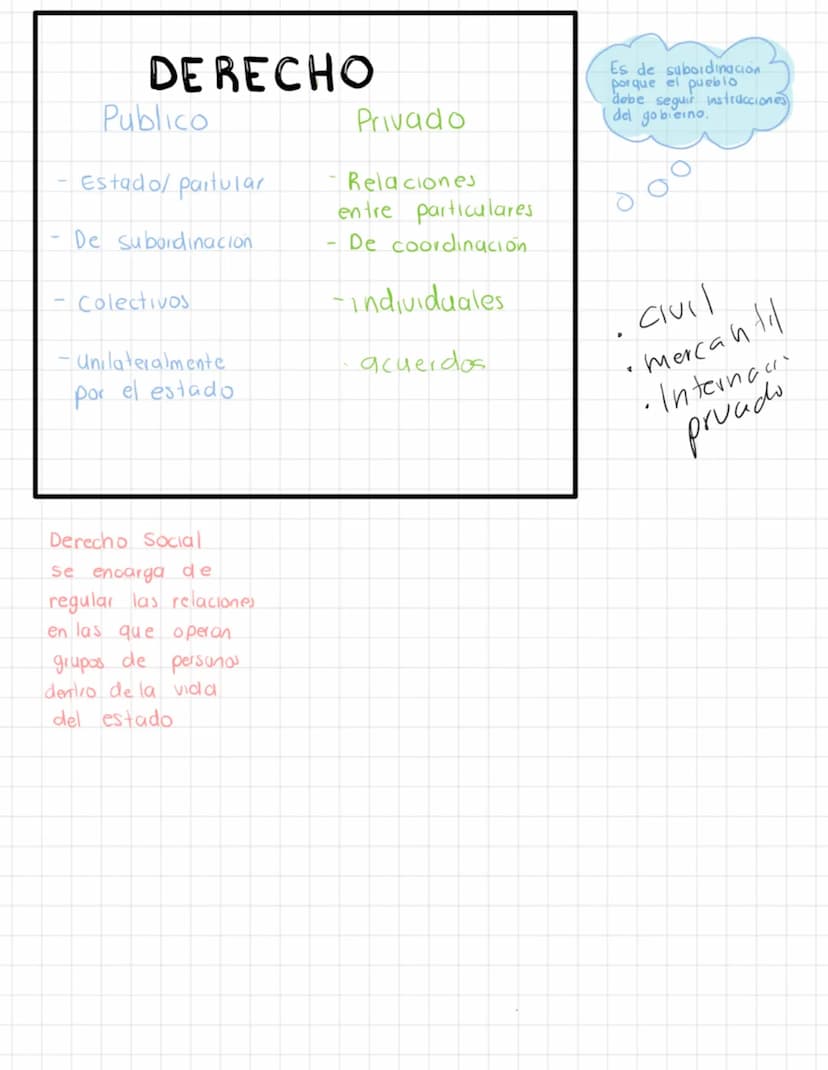 DERECHO
Publico
- Estado/ partular
- De subordinacion
- Colectivos
- Unilateralmente
por el estado
Privado
- Relaciones
entre particulares
- De coordinación
- individuales
· acuerdos
Es de subordinacion
porque el pueblo
debe seguir instrucciones
del gobierno.
· civil
· mercantil
· Internaci.
privado
Derecho Social
se encarga de
regular las relaciones
en las que operan
grupos de personas
dentro de la vida
del estado